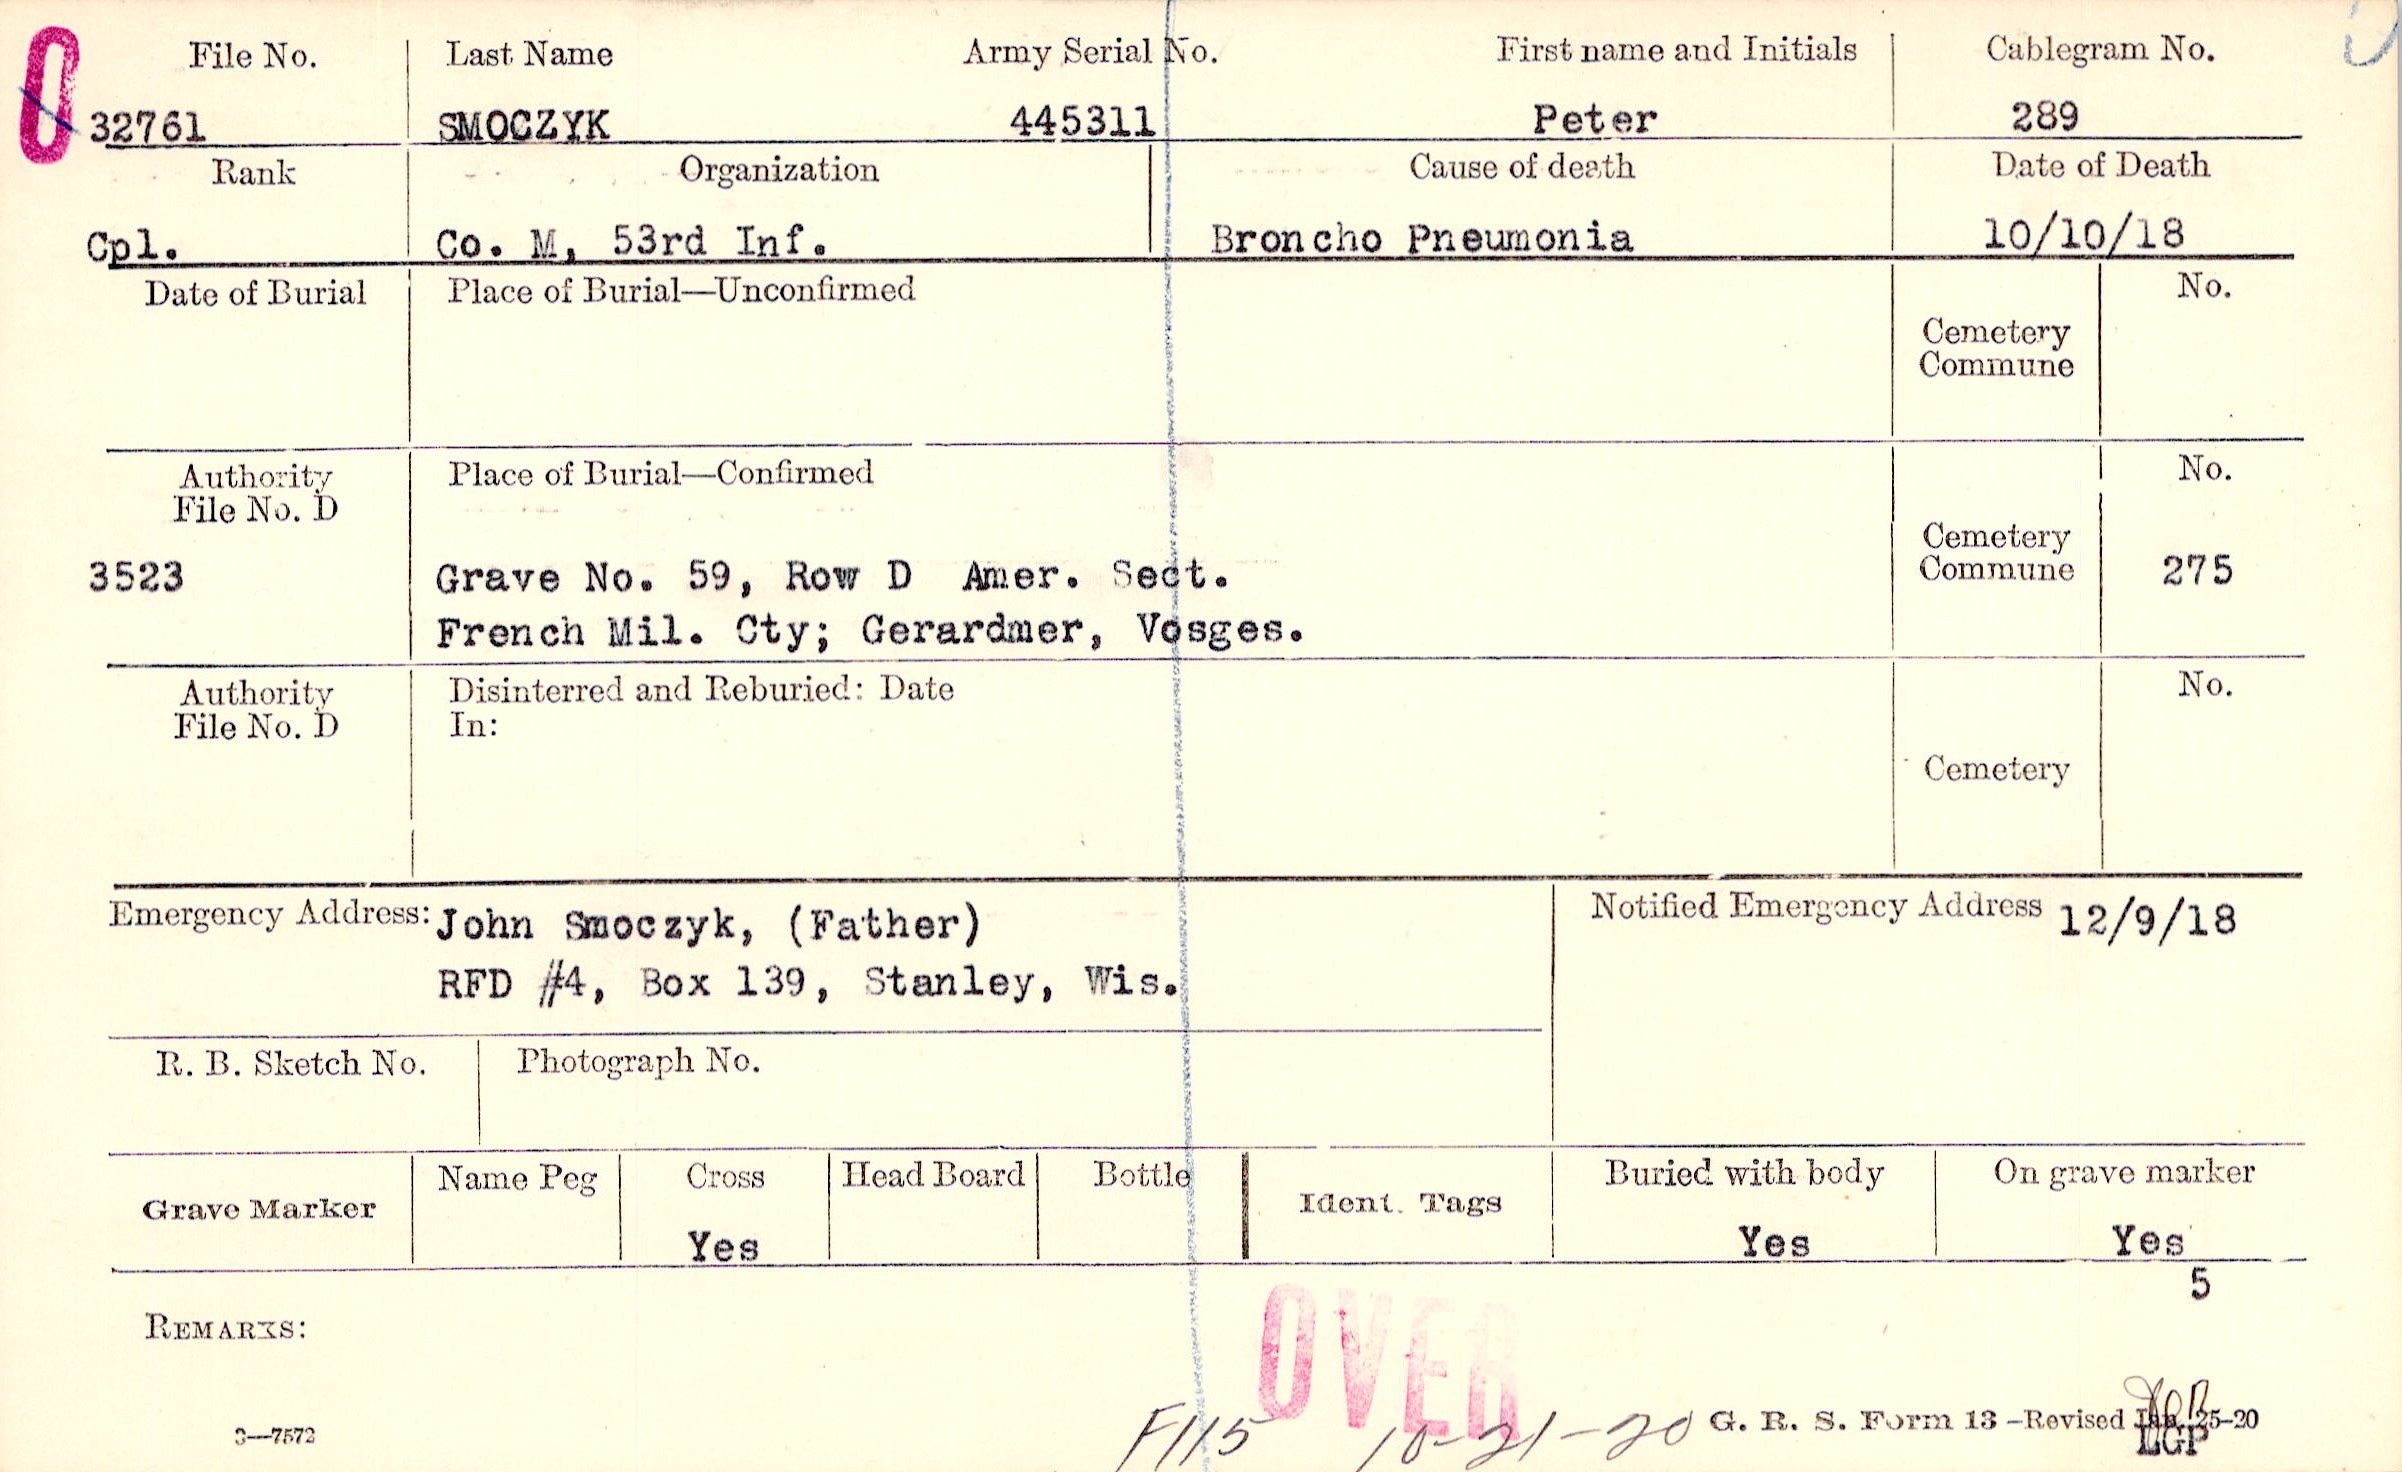 File No. Last Name Army Serial No. First name and Initials Cablegram No.
32761 SMOCZYK 445311 Peter 289
Rank Organization Cause of death Date of Death
Cpl. Co. M, 53rd Inf. Broncho Pneumonia 10/10/18
Date of Burial Place of Burial—Unconfirmed No.
Cemetery
Commune
Authority Place of Burial—Confirmed No.
File No. D
Cemetery
3523 Grave No. 59, Row D Amer. Sect. Commune 275
French Mil. Cty; Gerardmer, Vosges.
Authority Disinterred and Reburied: Date No.
File No. D In:
Cemetery
Emergency Address: John Smoczyk, (Father) Notified Emergency Address 12/9/18
RFD #4, Box 139, Stanley, Wis.
R. B. Sketch No. Photograph No.
Name Peg Cross Head Board Bottle Buried with body On grave marker
Grave Marker Ident. Tags
Yes Yes Yes
5
REMARKS:
OVER
F115 10-21-20 G. R. S. Form 13—Revised Jan. 25-20
3—7572 LGP